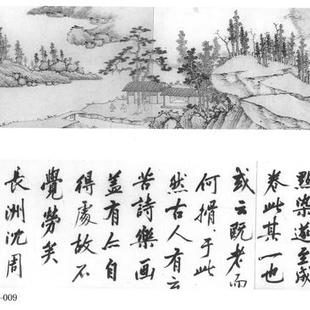 點染遊至成
卷此其一也
或云既老而
何搰于此
然古人有云
苦詩樂画
盖有仁自
得處故不
覺勞矣
長洲沈周
-009